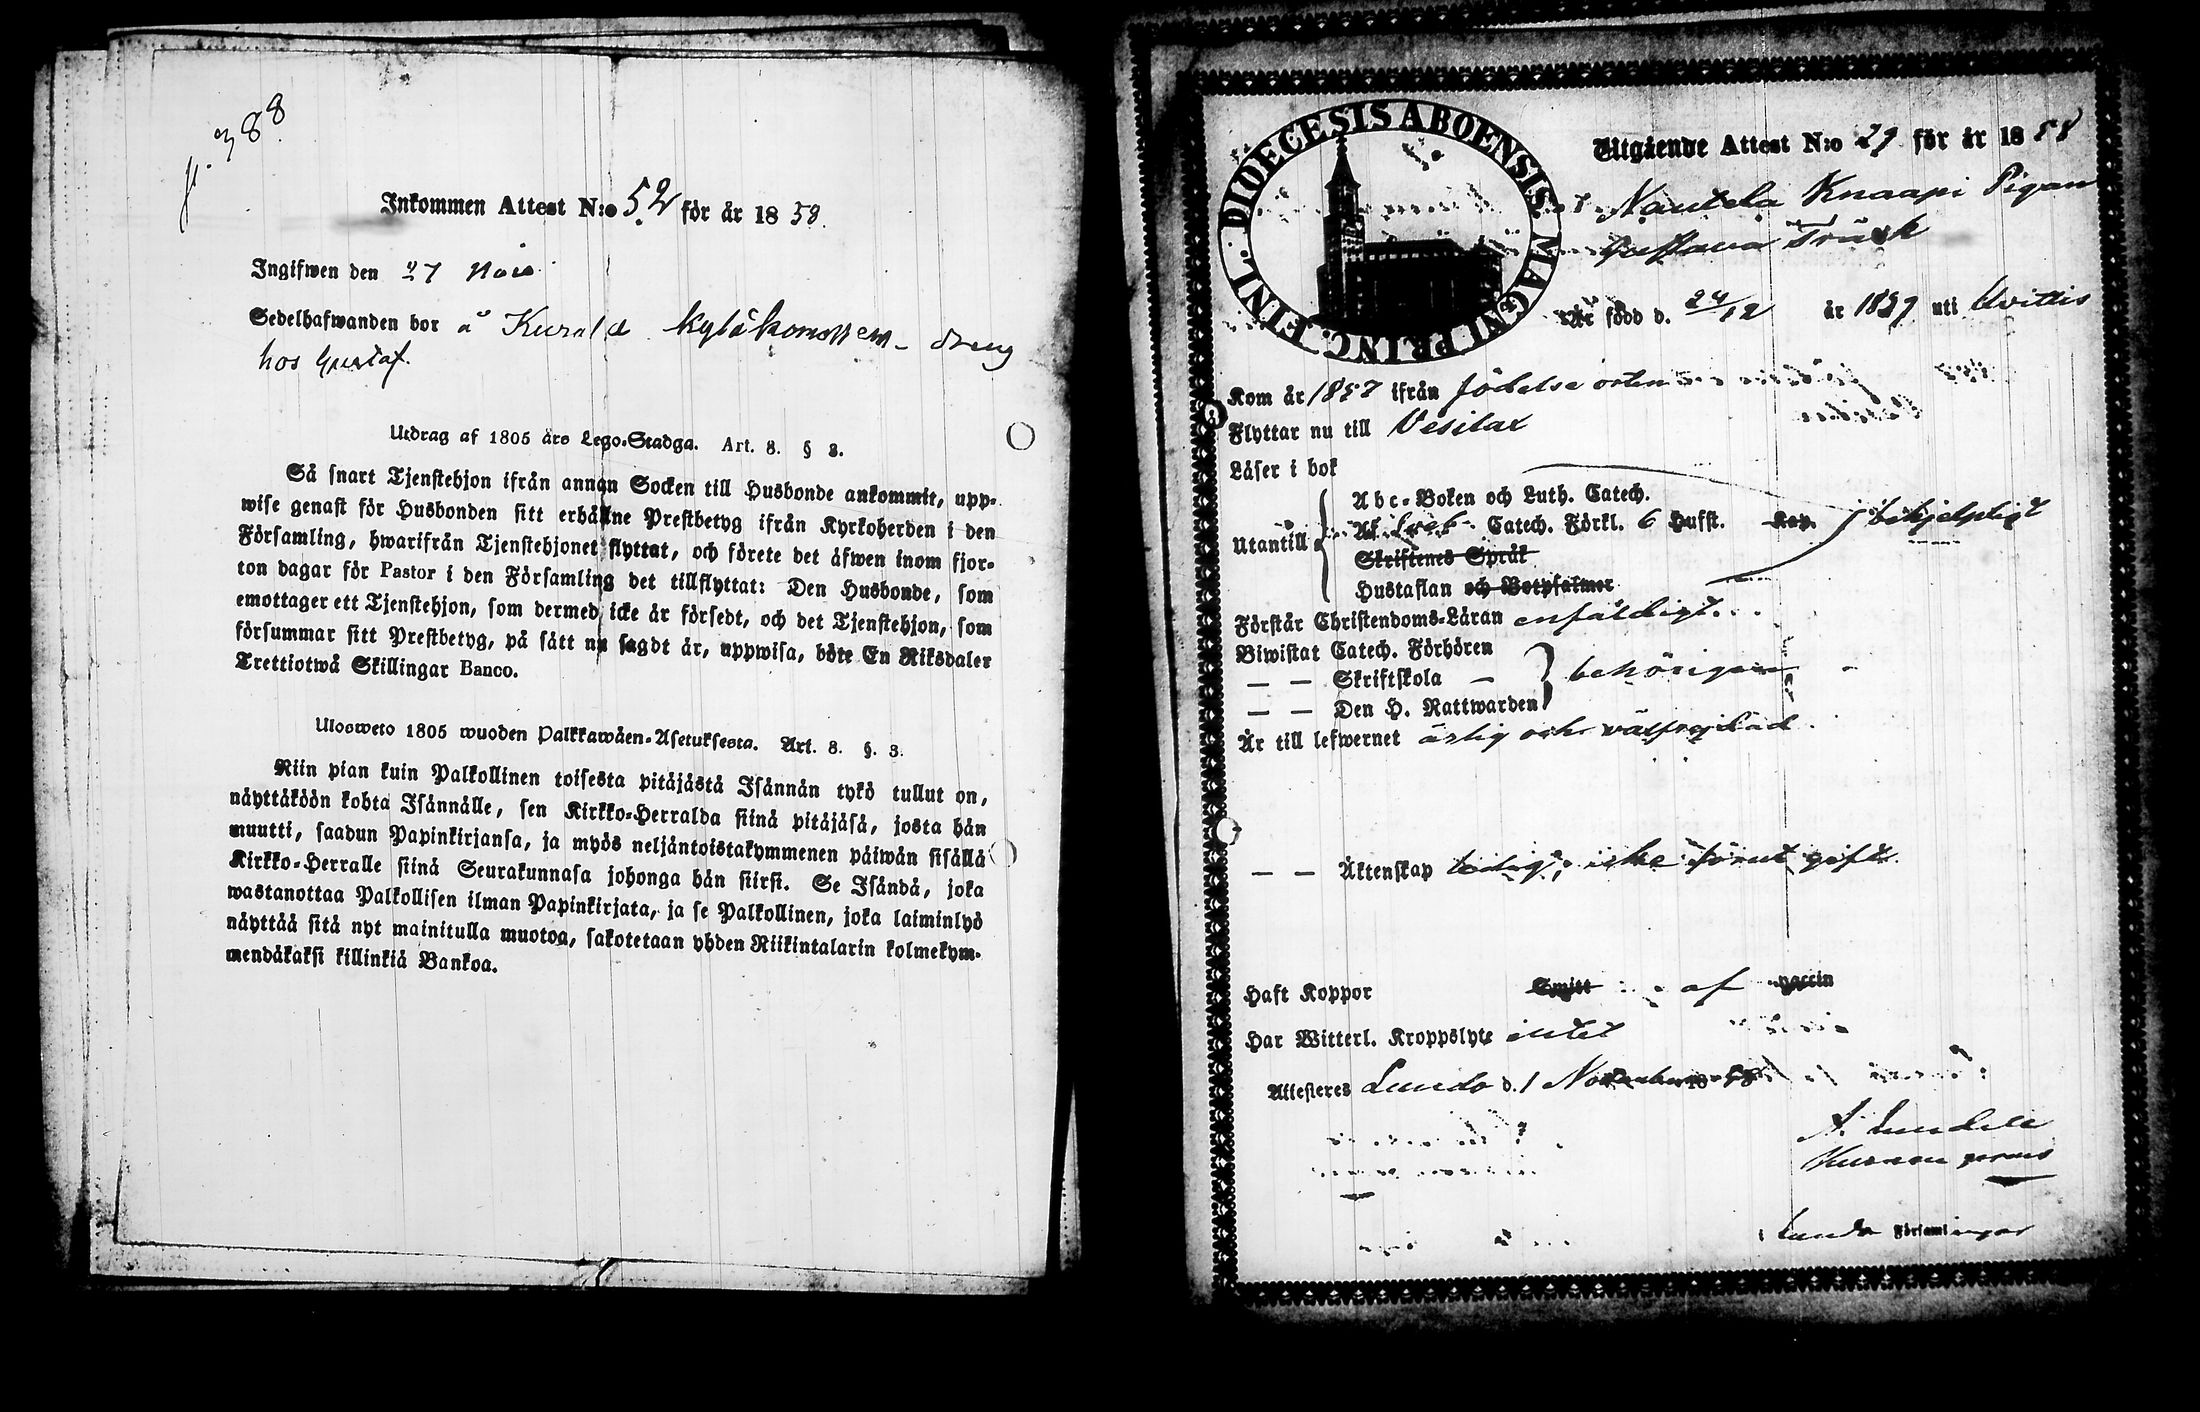 p. 388
Inkommen Attest N:o 52 för år 1858.
Ingifwen den 27 Nov.
Sedelhafwanden bor å Kurala kyläkomossen - dreng
hos Gustaf.
Utdrag af 1805 års Lego-Stadga. Art. 8. § 3.
Så snart Tjenstehjon ifrån annan Socken till Husbonde ankommit, upp-
wise genast för Husbonden sitt erhållne Prestbetyg ifrån Kyrkoherden i den
Församling, hwarifrån Tjenstehjonet flyttat, och förete det äfwen inom fjor-
ton dagar för Pastor i den Församling det tillflyttat: Den Husbonde, som
emottager ett Tjenstehjon, som dermed icke är försedt, och det Tjenstehjon, som
försummar sitt Prestbetyg, på sätt nu sagdt är, uppwisa, böte En Riksdaler
Trettiotwå Skillingar Banco.
Ulosweto 1805 wuoden Palkkawäen-Asetuksesta. Art. 8. §. 3.
Niin pian kuin Palkollinen toisesta pitäjästä Isännän tykö tullut on,
näyttäköön kohta Isännälle, sen Kirkko-Herralda siinä pitäjäsä, josta hän
muutti, saadun Papinkirjansa, ja myös neljäntoistakymmenen päiwän sisällä
Kirkko-Herralle siinä Seurakunnasa johonga hän siirsi. Se Isändä, joka
wastanottaa Palkollisen ilman Papinkirjata, ja se Palkollinen, joka laiminlyö
näyttää sitä nyt mainitulla muotoa, sakotetaan yhden Riikintalarin kolmekym-
mendäkaksi killinkiä Bankoa.
DIOECESIS ABOENSIS MAGNI PRINC. FINL.
Utgående Attest N:o 29 för år 1858
Nautela Knaapi Pigan
Gustava Träsk
Är född d. 24/12 år 1837 uti Hvittis
Kom år 1857 ifrån födelse orten
Flyttar nu till Vesilax
Läser i bok
Utantill
Abc-Boken och Luth. Catech.
Catech. Förkl. 6 Hufst. Kap. behjelpligt
Skriftenes Språk
Hustaflan och Botpsalmer
Förstår Christendoms-Läran enfäldigt.
Biwistat Catech. Förhören
— — Skriftskola — behörigen
— — Den H. Nattwarden
Är till lefwernet ärlig och välfrejdad.
— — Äktenskap ledig, icke förut gift.
Haft Koppor Smitt af vaccin
Har Witterl. Kroppslyte intet
Attesteras Lundo d. 1 November 1858
A. Lundell
Lundo Församlingar